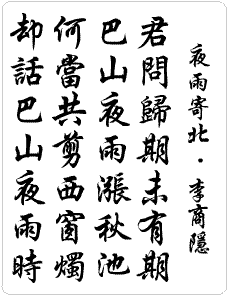 夜雨寄北·李商隱
君問歸期未有期
巴山夜雨漲秋池
何當共剪西窗燭
却話巴山夜雨時